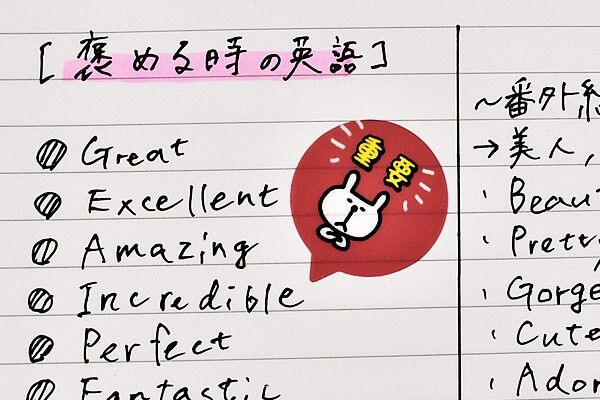 [褒める時の英語]
Great
Excellent
Amazing
Incredible
Perfect
Fantastic
重要
~番外
→美人,
Pretty
Cute